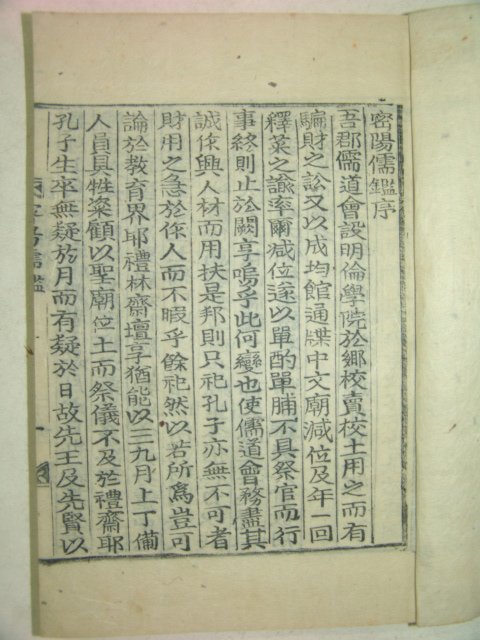 密陽儒鑑序
吾郡儒道會設明倫學院於鄉校賣校土用之而有
騙財之訟又以成均館通牒中文廟減位及年一回
釋菜之諭率爾減位遂以單酌單脯不具祭官而行
事終則止於闕享嗚乎此何變也使儒道會務盡其
誠作興人材而用扶是邦則只祀孔子亦無不可者
財用之急於作人而不暇乎餘祀然以若所爲豈可
論於教育界耶禮林齋壇享猶能以三九月上丁備
人員具牲粢顧以聖廟位土而祭儀不及於禮齋耶
孔子生卒無疑於月而有疑於日故先王及先賢以